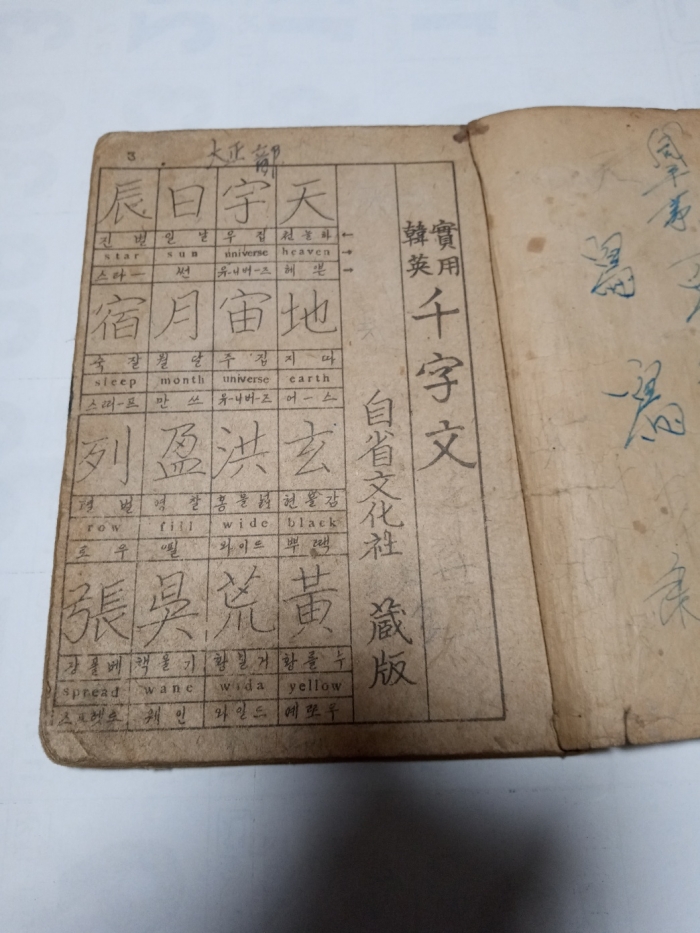 實用
韓英
千字文
自省文化社 藏版
3
大正
天
하늘천
←
heaven
헤븐
→
地
따지
earth
어-스
玄
black
뿌랙
黃
누를황
yellow
宇
집우
universe
유-니버-즈
宙
집주
universe
유-니버-즈
洪
wide
와이드
荒
wida
와일드
日
날일
sun
썬
月
달월
month
만쓰
盈
fill
필
昃
기울책
wane
웨인
辰
별진
star
스타-
宿
잘숙
sleep
列
벌렬
row
로우
張
베풀장
spread
스프레드